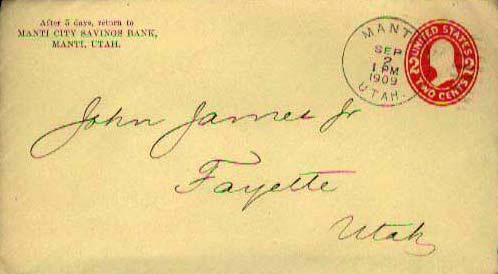 After 5 days, return to
MANTI CITY SAVINGS BANK,
MANTI, UTAH.
MANTI
SEP
2
1 PM
1909
UTAH.
UNITED STATES
2 2
TWO CENTS
John James Jr
Fayette
Utah